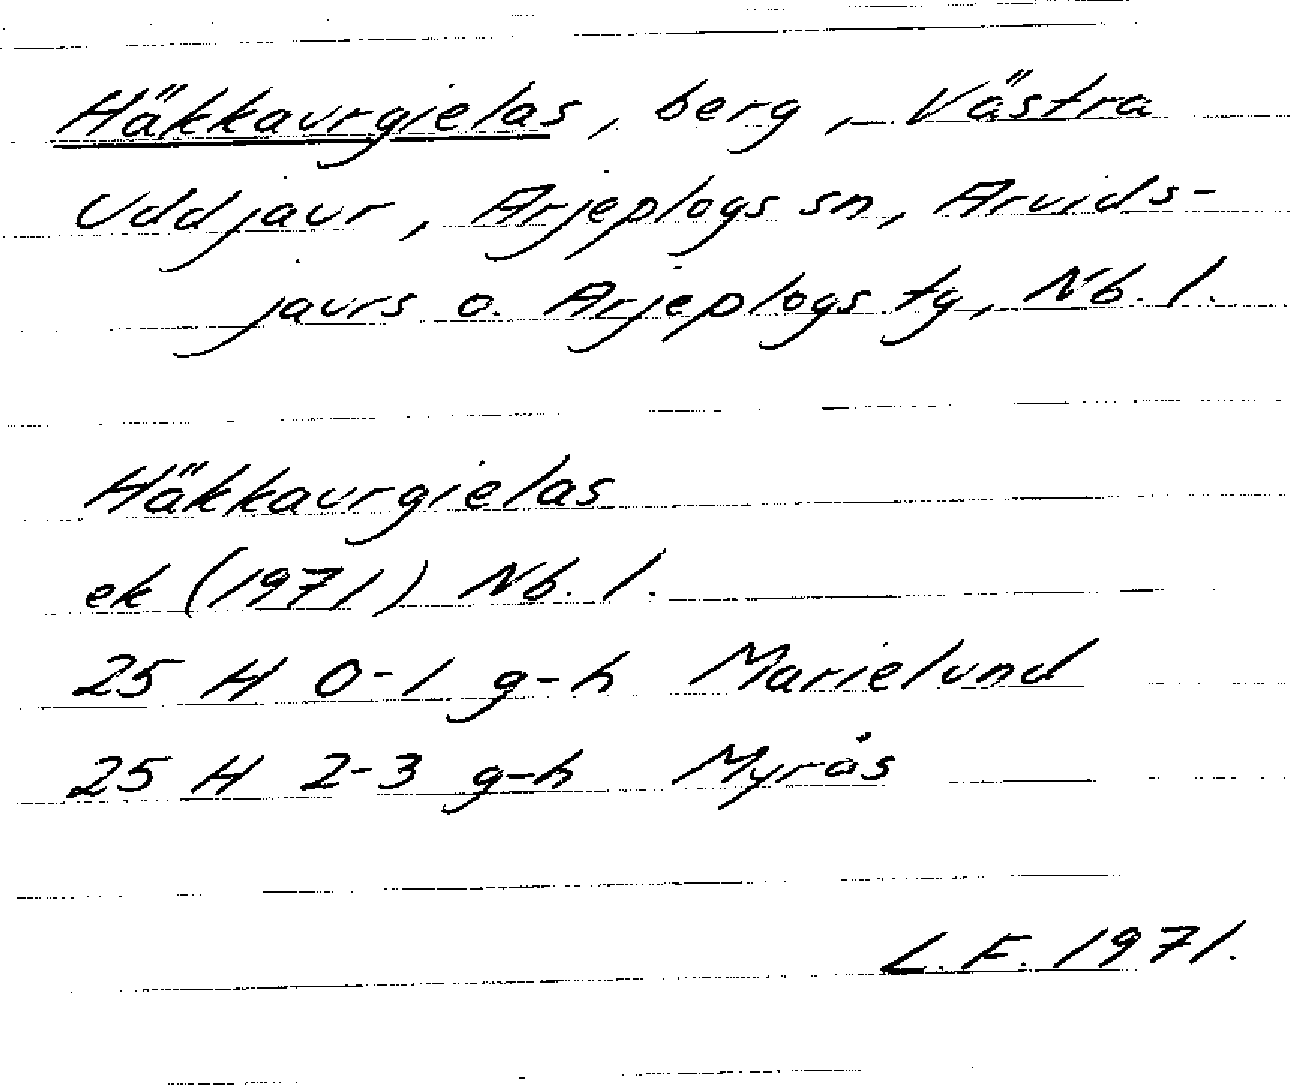 Häkkaurgielas, berg, Västra
Uddjaur, Arjeplogs sn, Arvids-
jaurs o. Arjeplogs tg, Nb. l.
Häkkaurgielas
ek (1971) Nb. l.
25 H 0-1 g-h Marielund
25 H 2-3 g-h Myrås
L.F. 1971.